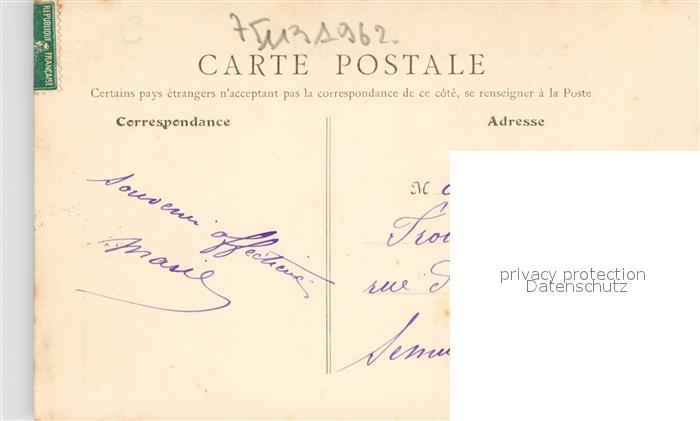 RÉPUBLIQUE FRANÇAISE
CARTE POSTALE
Certains pays étrangers n'acceptant pas la correspondance de ce côté, se renseigner à la Poste
Correspondance
Adresse
Souvenir affectueux
Marie
M
rue
privacy protection
Datenschutz